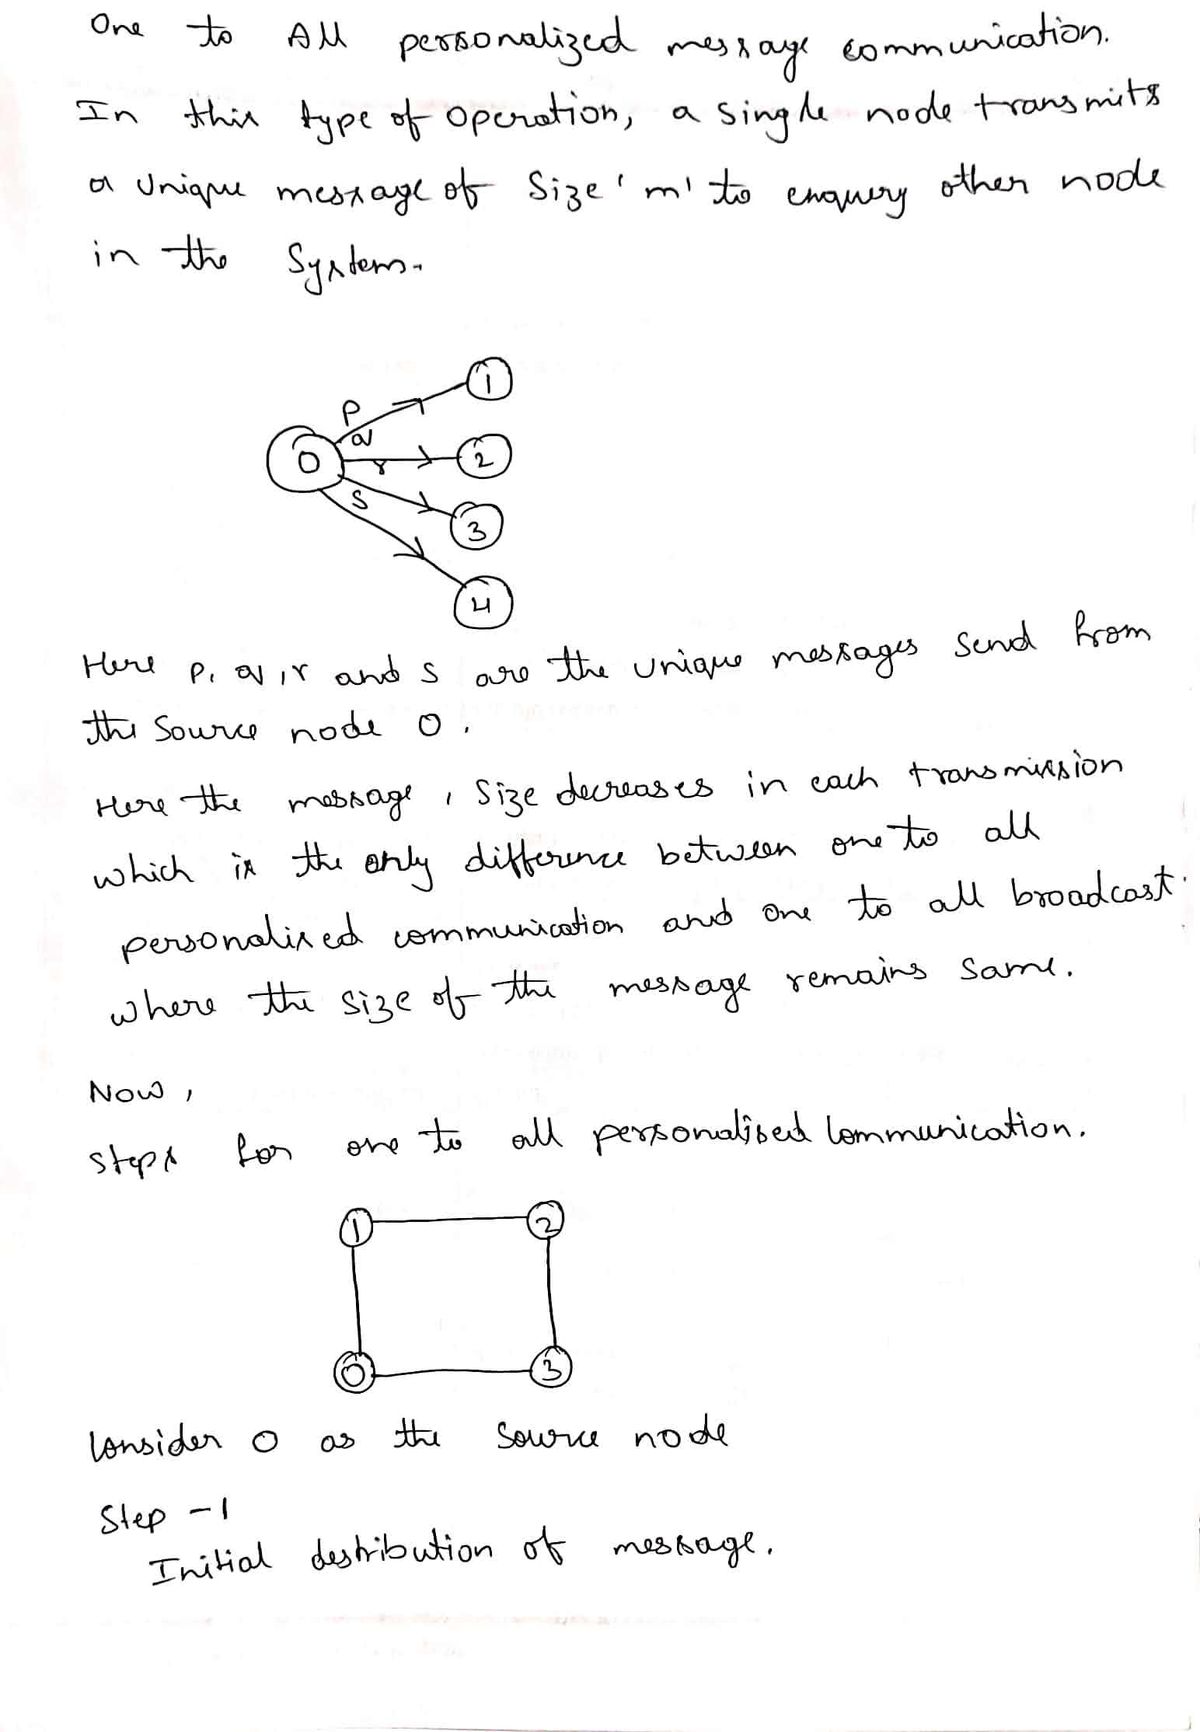 One to All personalized message communication.
In this type of operation, a single node transmits
a unique message of size 'm' to enquery other node
in the System.
1
P
q
0
r
2
S
3
4
Here P, q, r and s are the unique messages send from
the source node 0.
Here the message, size decreases in each transmission
which is the only difference between one to all
personalised communication and one to all broadcast.
where the size of the message remains same.
Now,
steps for one to all personalised communication.
1 2
0 3
Consider 0 as the source node
Step -1
Initial destribution of message.